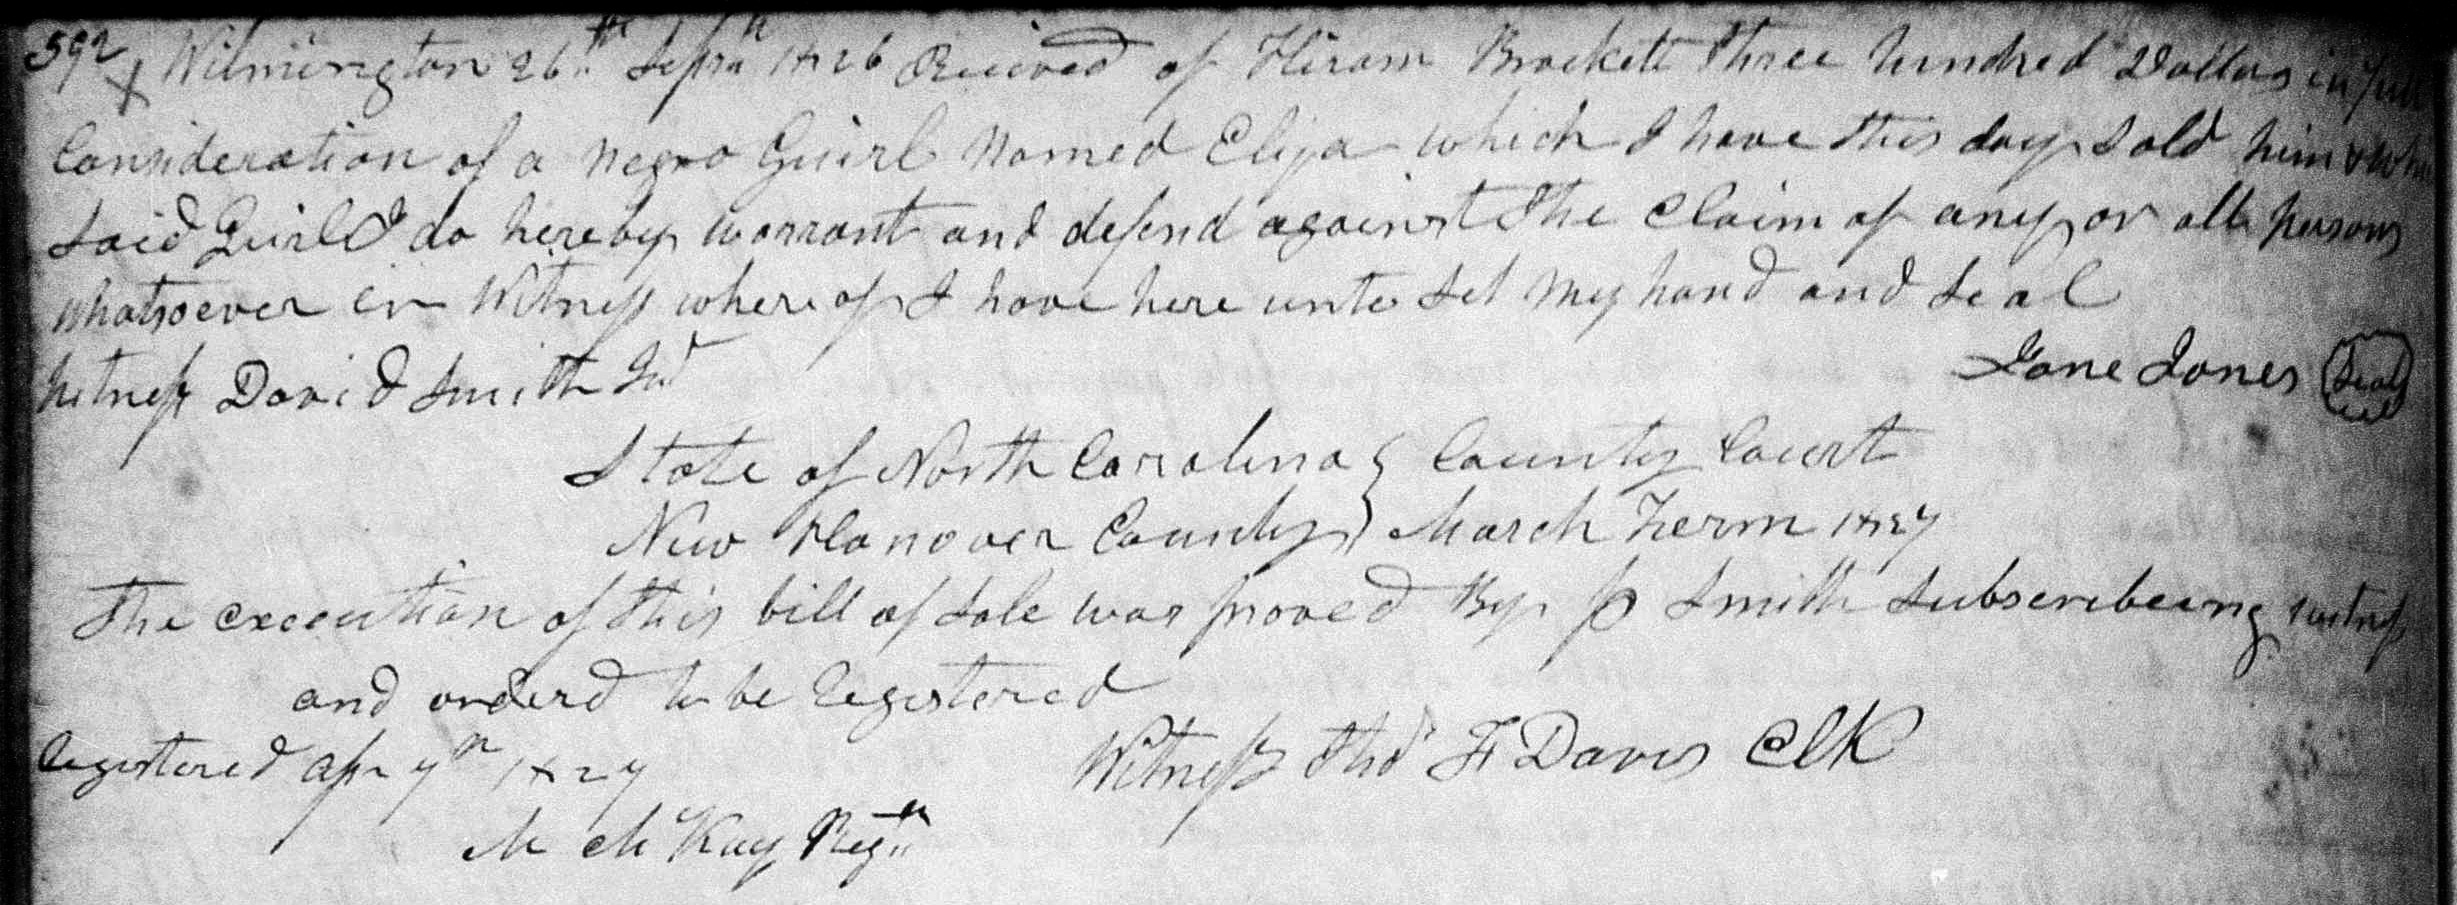 592
X Wilmington 26th Septr 1826 Recieved of Hiram Brockett three hundred Dollars in full
Consideration of a negro Guirl Named Eliza which I have this day Sold him &
Said Guirl I do hereby warrant and defend against the Claim of any or all persons
whatsoever in Witness where of I have here unto Set my hand and Seal
Witness David Smith Jr Jane Jones Seal
State of North Carolina } County Court
New Hanover County } March Term 1827
The execution of this bill of Sale was proved By D Smith Subscribeing witness
and orderd to be Registered
Witness Thos F Davis Clk
Registered Apr 7th 1827
M McKay Regr